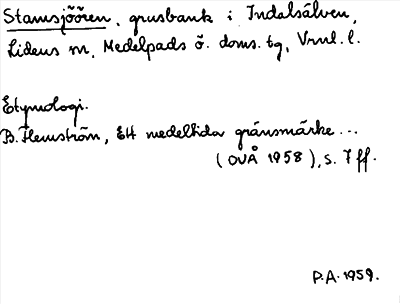 Stamsjöören, grusbank i Indalsälven,
Lidens sn, Medelpads ö. doms. tg, Vrnl. l.
Etymologi.
B. Flemström, Ett medeltida gränsmärke...
(OVÅ 1958), s. 7 ff.
P.A. 1959.